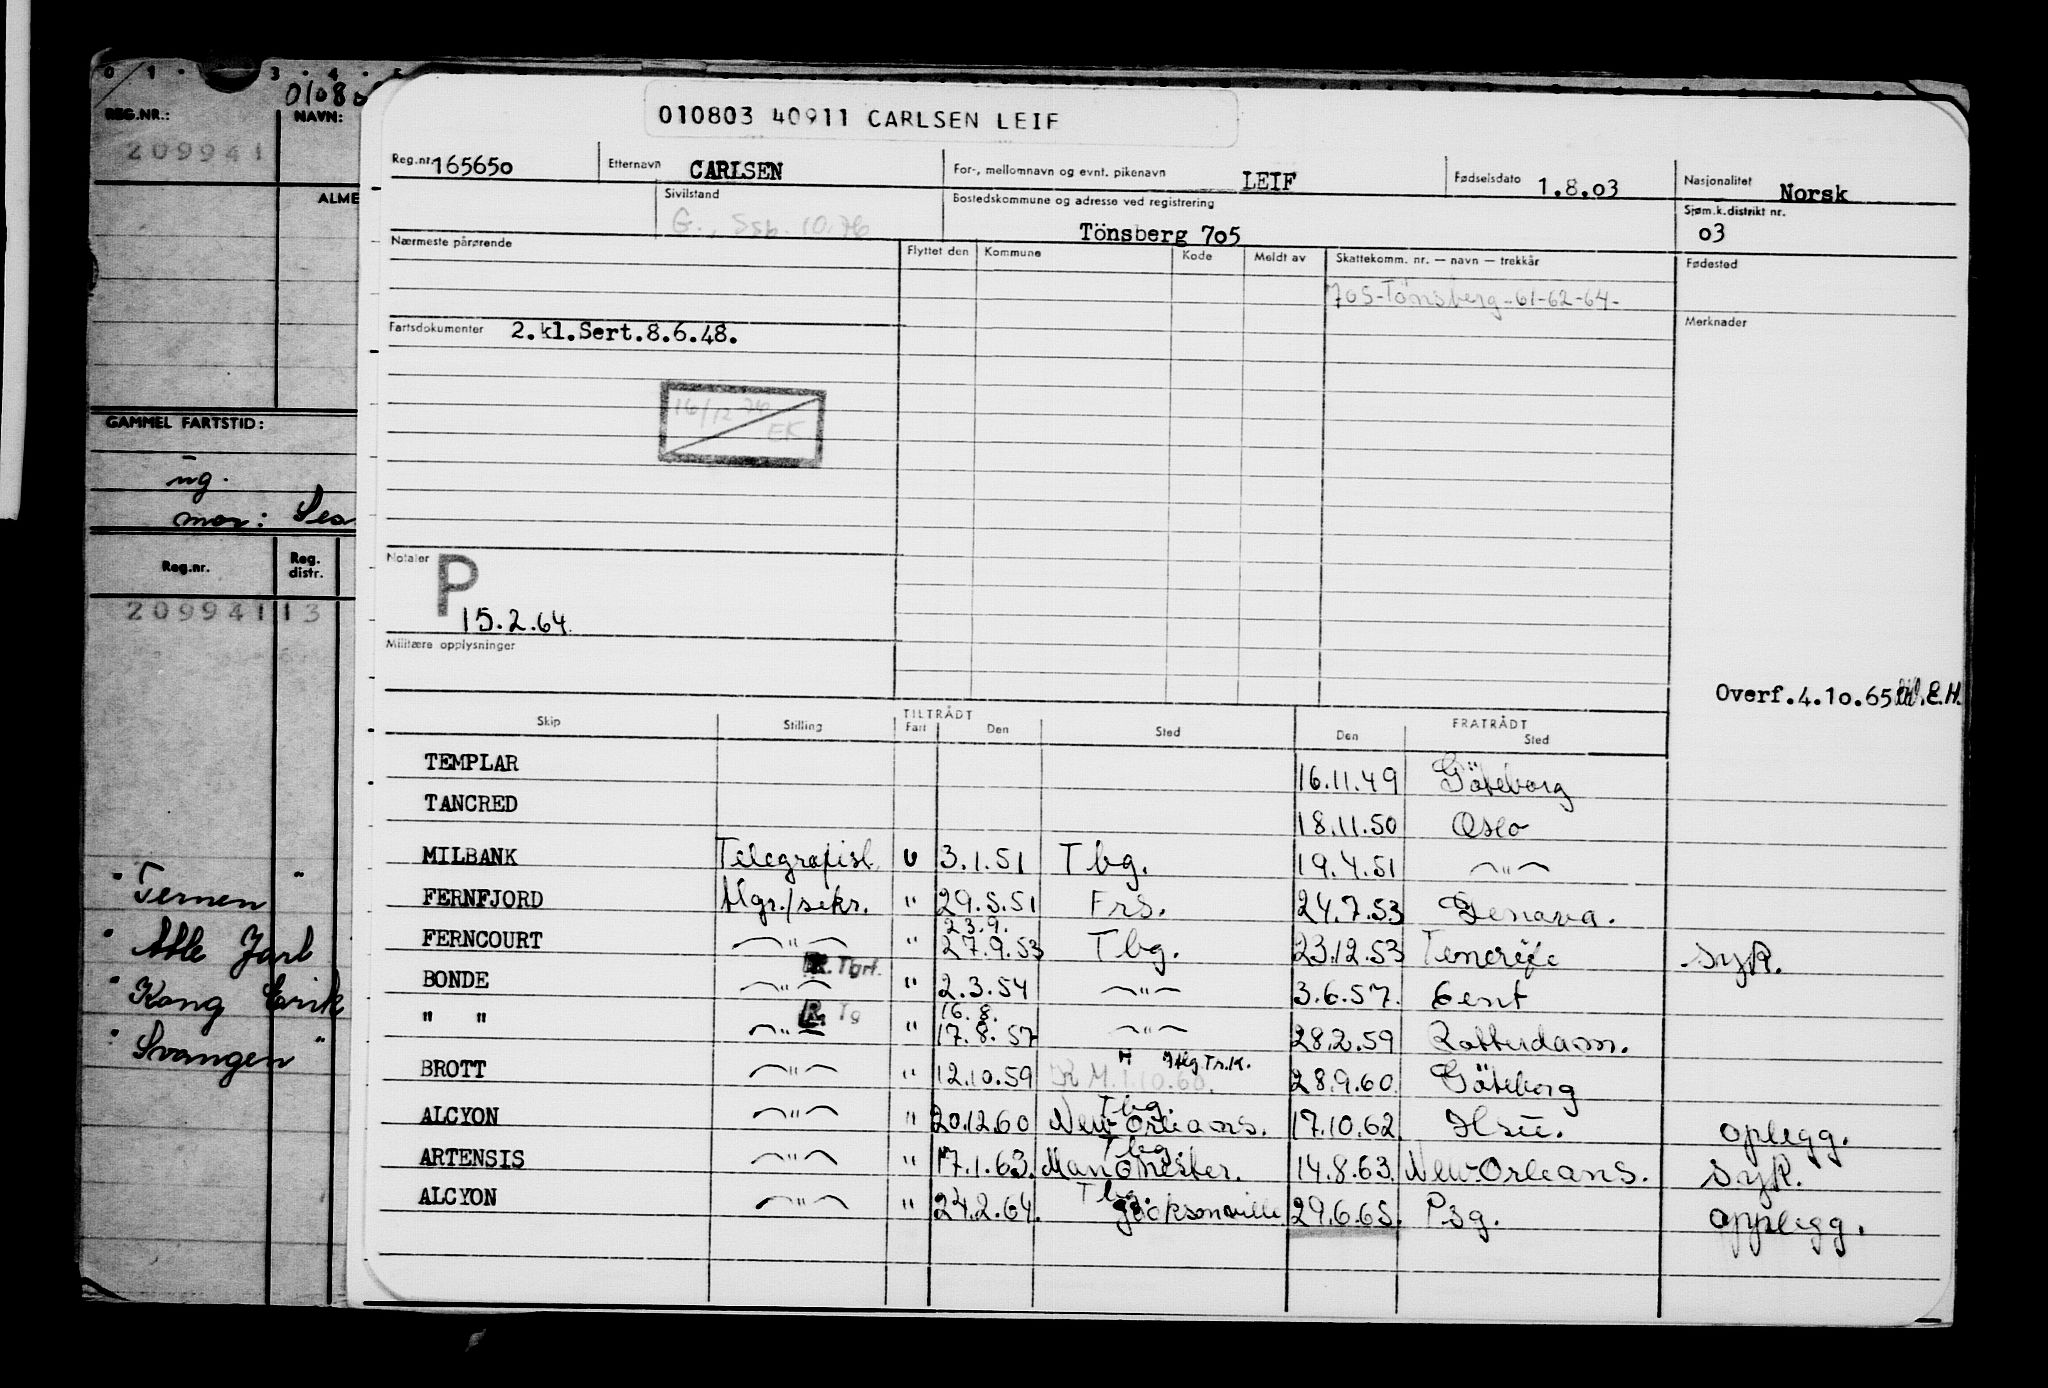 0 1 3 4 5
REG.NR.:
NAVN:
209941
ALME
GAMMEL FARTSTID:
ug.
mor:
Reg.nr.
Reg. distr.
209941 13
" Ternen "
" Atle Jarl
" Kong Erik
" Svangen "
010803 40911 CARLSEN LEIF
Reg.nr. 165650 Etternavn CARLSEN For-, mellomnavn og evnt. pikenavn LEIF Fødselsdato 1.8.03 Nasjonalitet Norsk
Sivilstand G., Ssb. 10.76 Bostedskommune og adresse ved registrering Tönsberg 705 Sjøm.k.distrikt nr. 03
Nærmeste pårørende Flyttet den Kommune Kode Meldt av Skattekomm. nr. — navn — trekkår Fødested
705-Tönsberg-61-62-64-
Fartsdokumenter 2.kl.Sert.8.6.48. Merknader
16/12 EK
Notater P
15.2.64.
Militære opplysninger
Overf.4.10.65 E.H.
TILTRÅDT FRATRÅDT
Skip Stilling Fart Den Sted Den Sted
TEMPLAR 16.11.49 Göteborg
TANCRED 18.11.50 Oslo
MILBANK Telegrafist U 3.1.51 Tbg. 19.4.51 — " —
FERNFJORD tlgr./sekr. " 29.5.51 Frs. 24.7.53 Genova.
23.9.
FERNCOURT — " — " 27.9.53 Tbg. 23.12.53 Tenerife syk.
R. Tgrf.
BONDE — " — " 2.3.54 — " — 3.6.57. Gent
R. Tg 16.8.
" " — " — " 17.8.57 — " — 28.2.59 Rotterdam.
BROTT — " — " 12.10.59 R M. 1.10.60. 28.9.60. Göteborg
Tbg.
ALCYON — " — " 20.12.60 New-Orleans. 17.10.62. opplegg.
Tbg.
ARTENSIS — " — " 17.1.63. Manchester. 14.8.63. New-Orleans. syk.
Tbg.
ALCYON — " — " 24.2.64. Jacksonville 29.6.65. Psg. opplegg.